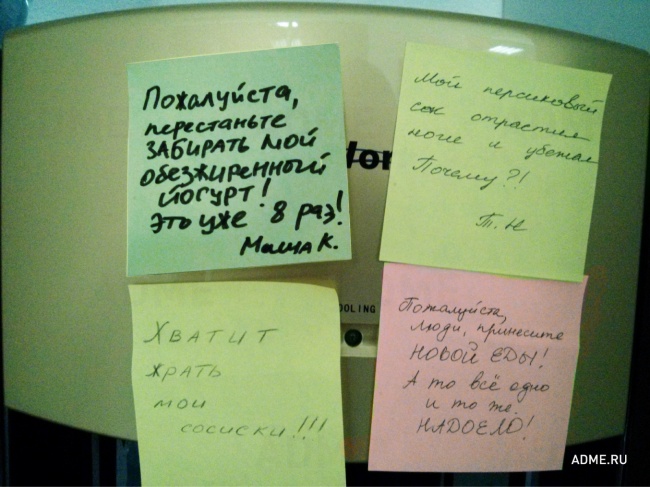 Пожалуйста,
перестаньте
ЗАБИРАТЬ МОЙ
ОБЕЗЖИРЕННЫЙ
ЙОГУРТ!
Это уже 8 раз!
Маша К.
Мой персиковый
сок отрастил
ноги и убежал
Почему?!
Т. Н
OOLING
ХВАТИТ
ЖРАТЬ
МОИ
СОСИСКИ!!!
Пожалуйста,
люди, принесите
НОВОЙ ЕДЫ!
А то всё одно
и то же.
НАДОЕЛО!
ADME.RU